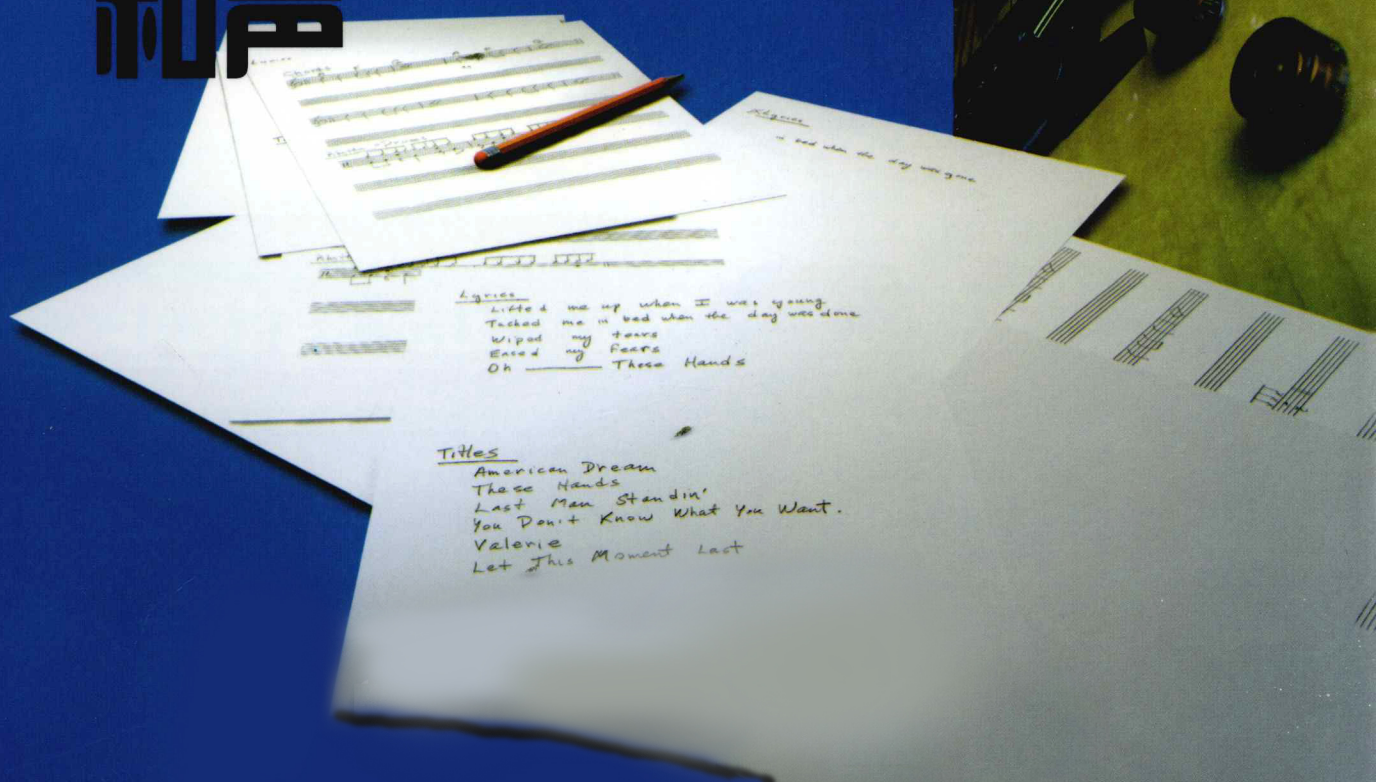 和声
Lyrics
Chords
Rhymes
bed when the day was gone
Lyrics
Lifted me up when I was young
Tucked me in bed when the day was done
Wiped my tears
Eased my fears
Oh ——— These Hands
Titles
American Dream
These Hands
Last Man Standin'
You Don't Know What You Want.
Valerie
Let This Moment Last